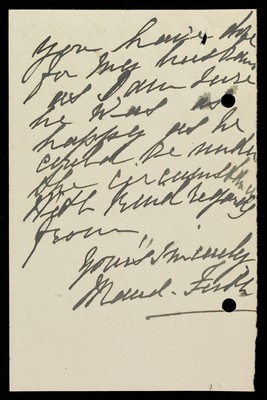 you have done
for my husband
as I am sure
he was as
happy as he
could be under
the circumstances
With kind regards
from
Yours Sincerely
Maud